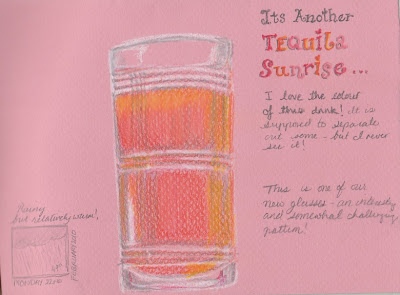 Its Another
Tequila
Sunrise...
I love the colour
of this drink! It is
supposed to separate
out some - but I never
see it!
This is one of our
new glasses - an interesting
and somewhat challenging
pattern!
Rainy
but relatively warm!
MONDAY
FEBRUARY